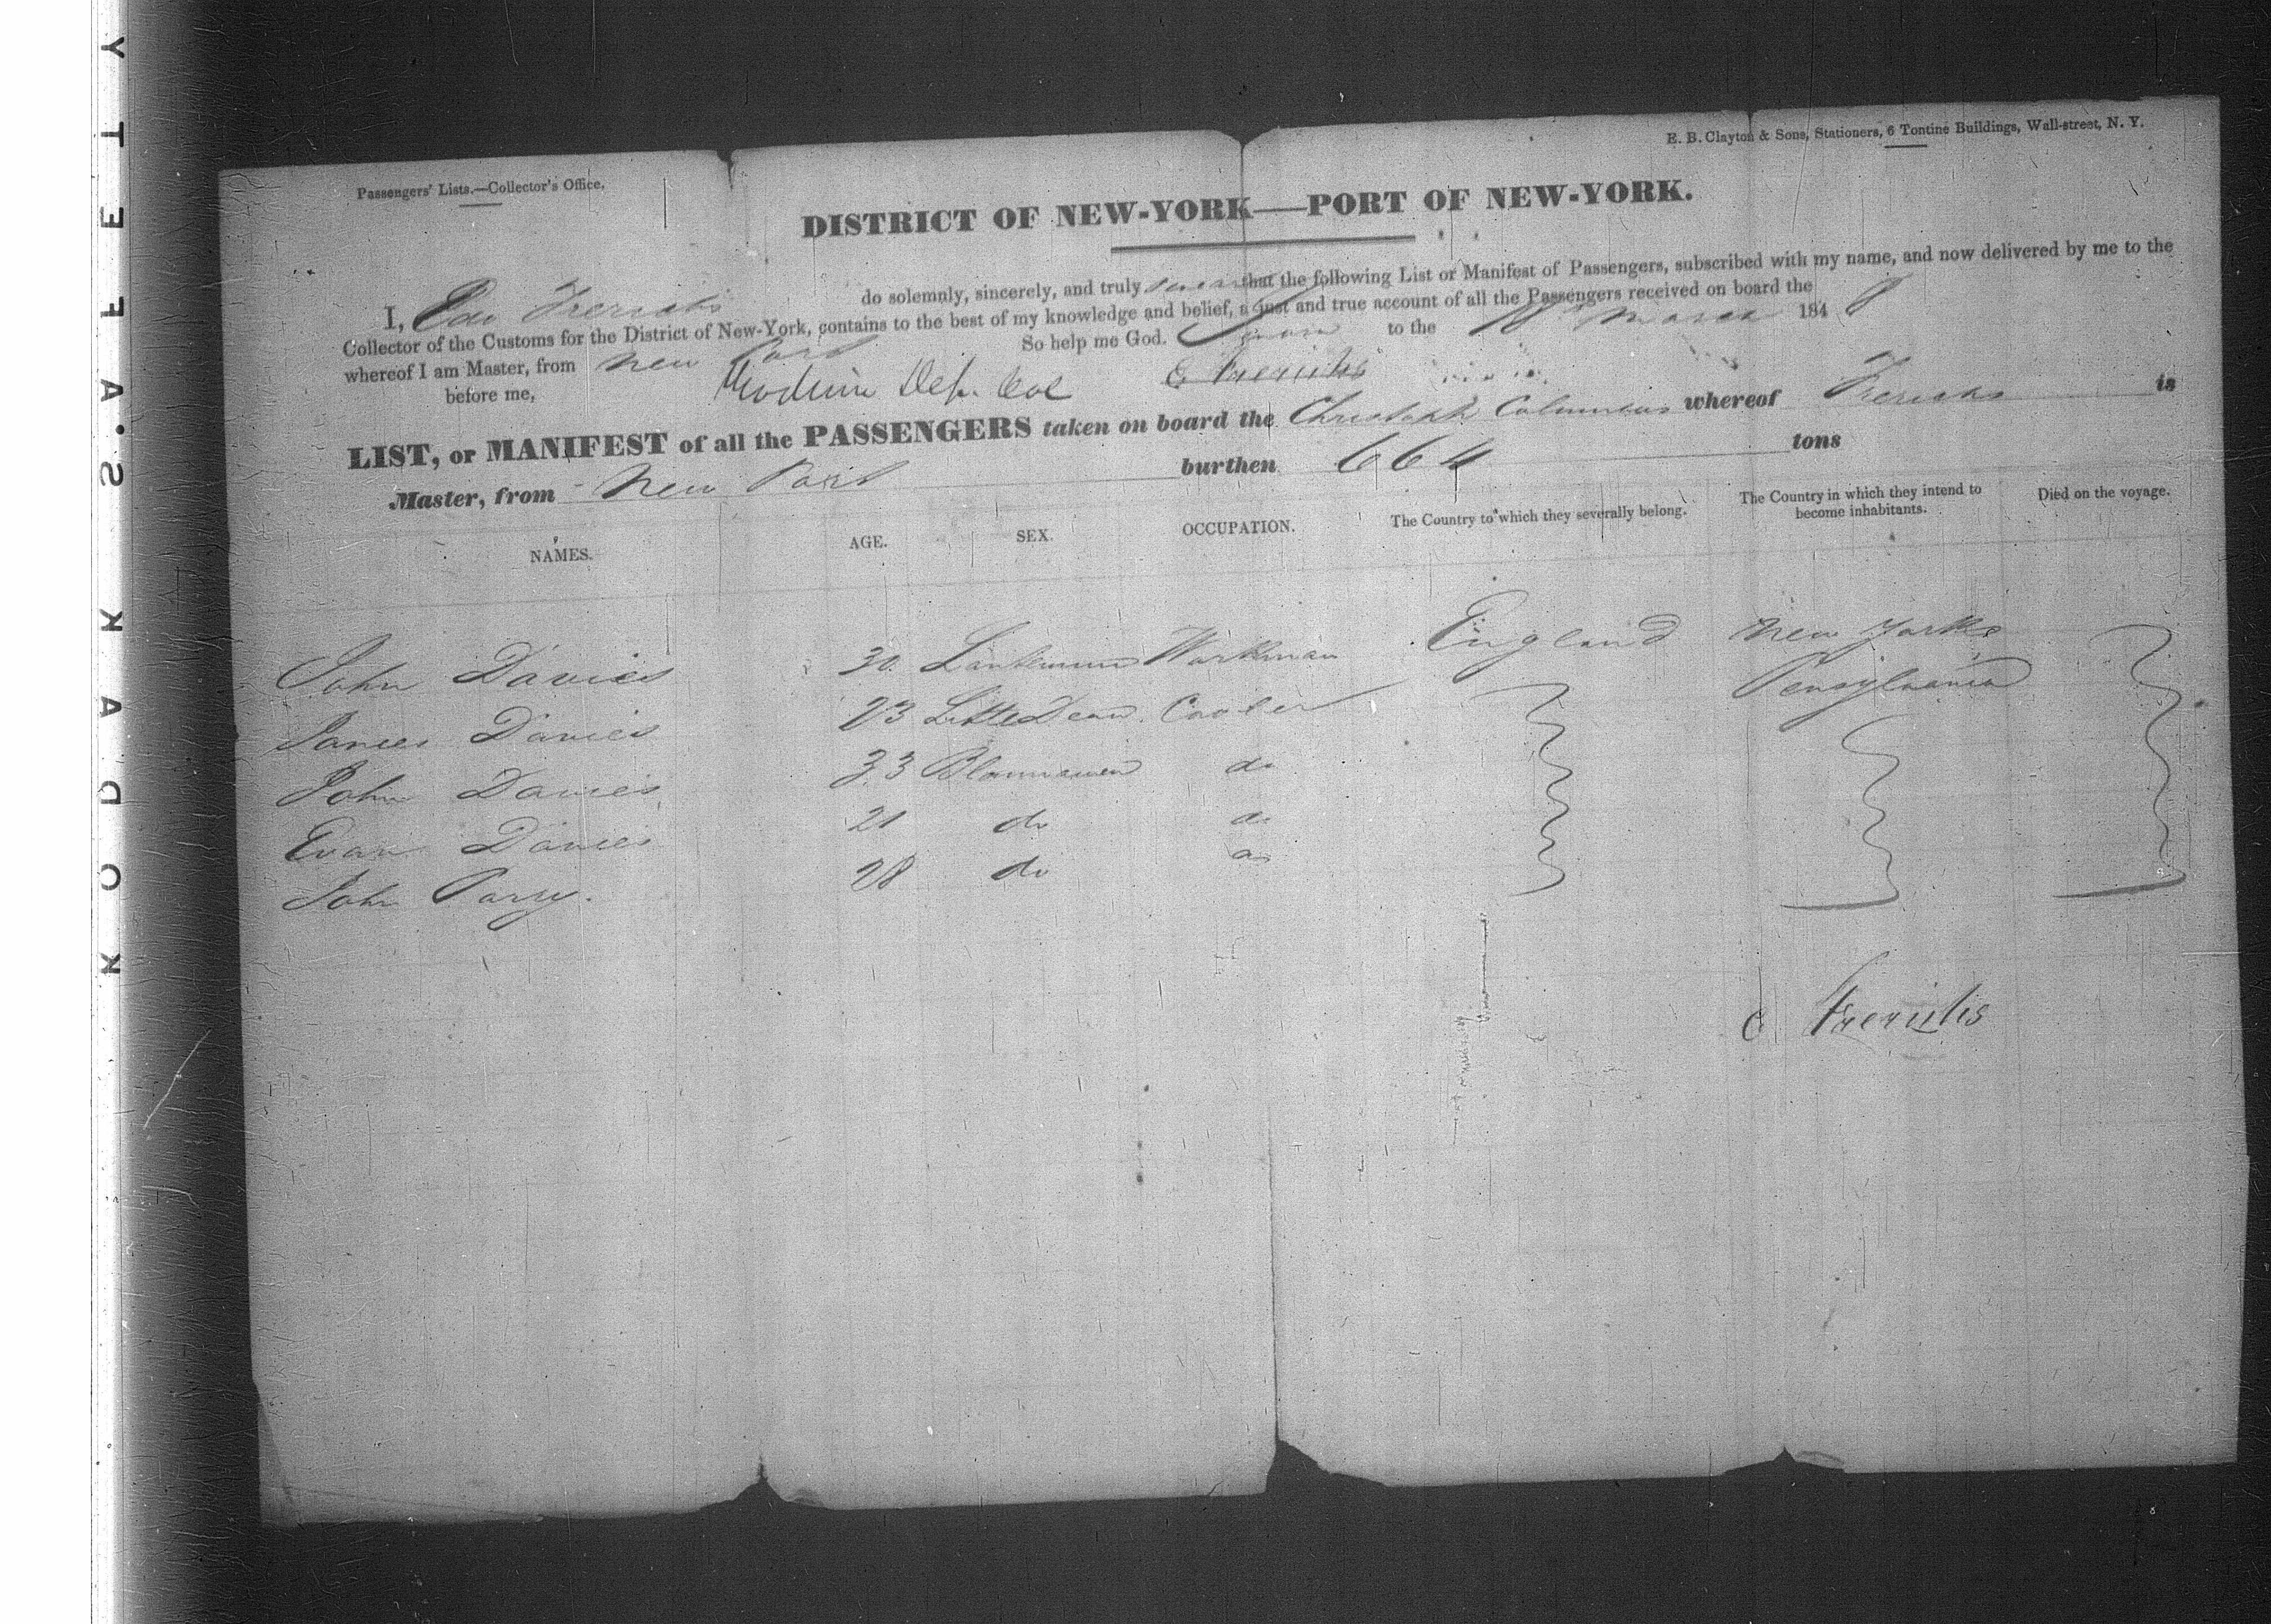 KODAK·SAFETY
E. B. Clayton & Sons, Stationers, 6 Tontine Buildings, Wall-street, N. Y.
Passengers' Lists.—Collector's Office.
DISTRICT OF NEW-YORK—PORT OF NEW-YORK.
I, Frerichs do solemnly, sincerely, and truly swear that the following List or Manifest of Passengers, subscribed with my name, and now delivered by me to the
Collector of the Customs for the District of New-York, contains to the best of my knowledge and belief, a just and true account of all the Passengers received on board the
whereof I am Master, from New Port So help me God. Sworn to the March 1848
before me, Dep. Col E Frerichs
LIST, or MANIFEST of all the PASSENGERS taken on board the Christoph Columbus whereof Frerichs is
Master, from New Port burthen 664 tons
NAMES. AGE. SEX. OCCUPATION. The Country to which they severally belong. The Country in which they intend to become inhabitants. Died on the voyage.
John Davies 30 Workman England New York
James Davies 23 Little Dean Pensylvania
John Davies 33 do
Evan Davies 21 do do
John Parry. 28 do do
E Frerichs